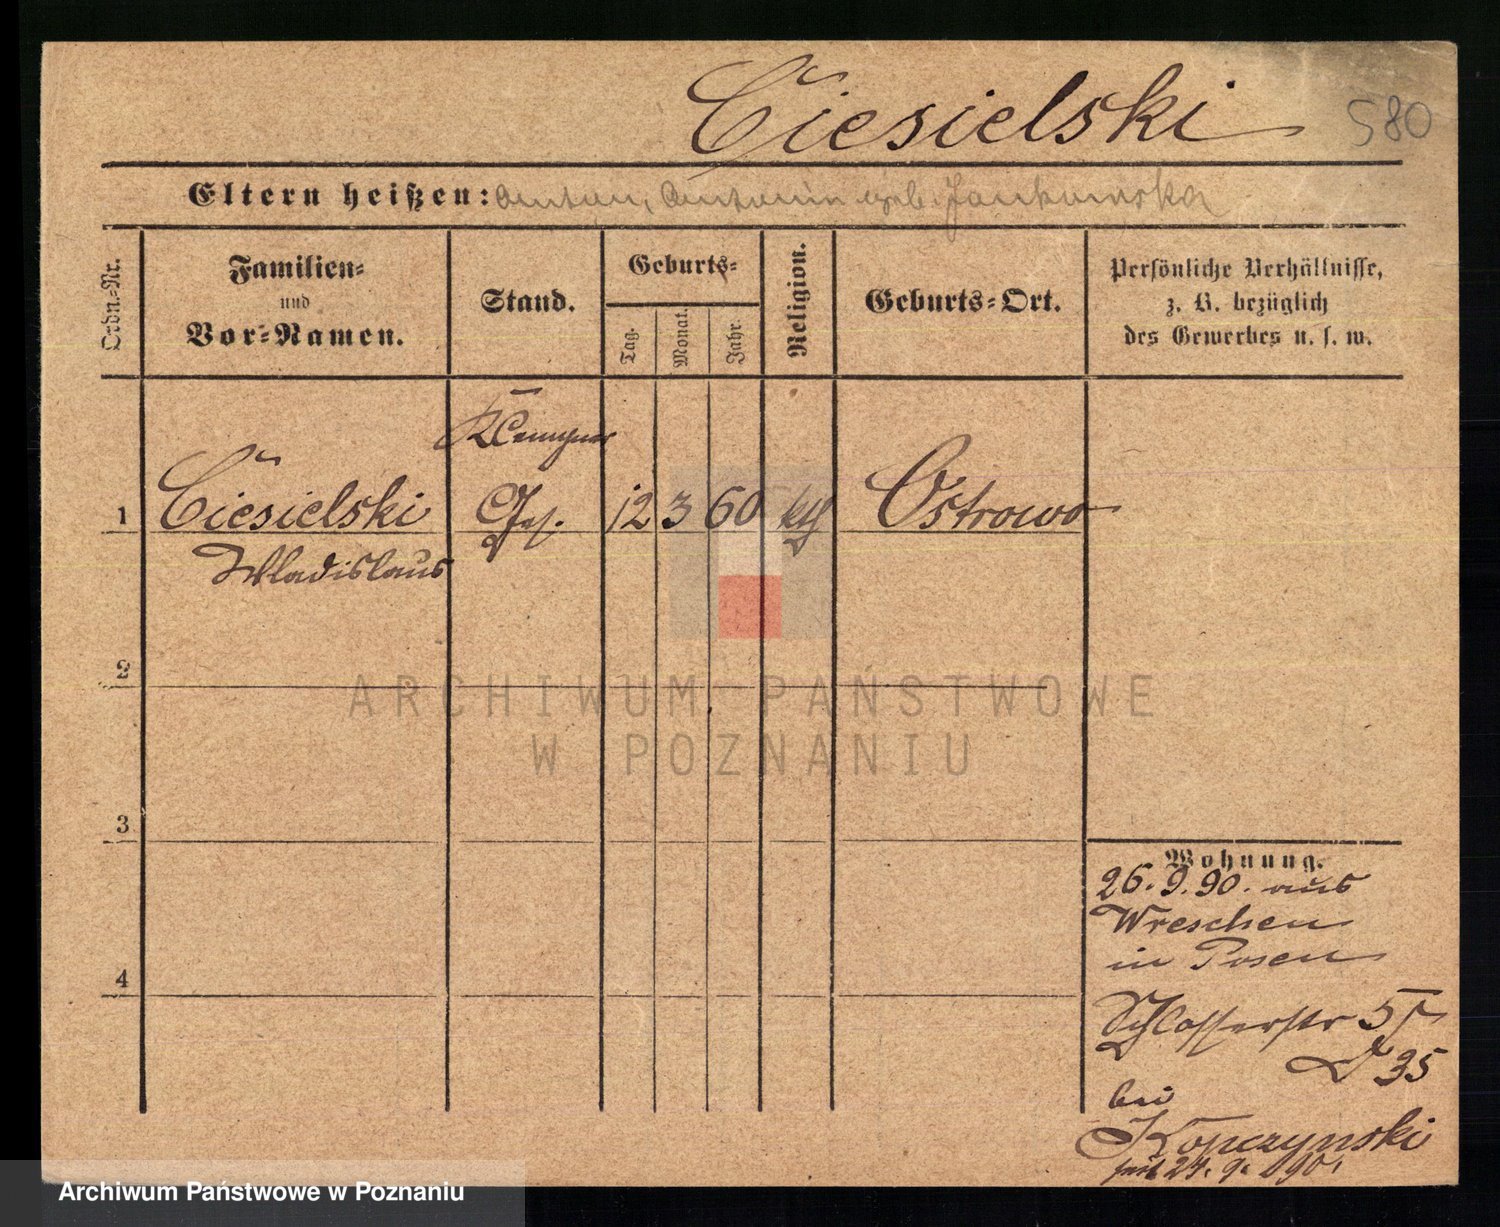 Ciesielski 580
Eltern heißen: Anton, Antonie geb. Jankowska
Ordn.-Nr.
Familien-
und
Vor-Namen.
Stand.
Geburts-
Tag.
Monat.
Jahr.
Religion.
Geburts-Ort.
Persönliche Verhältnisse,
z. B. bezüglich
des Gewerbes u. s. w.
Klempner
1 Ciesielski Ges. 12 3 60 kth Ostrowo
Wladislaus
2
3
4
Wohnung.
26.9.90. aus
Wreschen
in Posen
Schlosserstr 5
35
bei
Kopczynski
seit 24. 9. 90.
ARCHIWUM PAŃSTWOWE
W POZNANIU
Archiwum Państwowe w Poznaniu